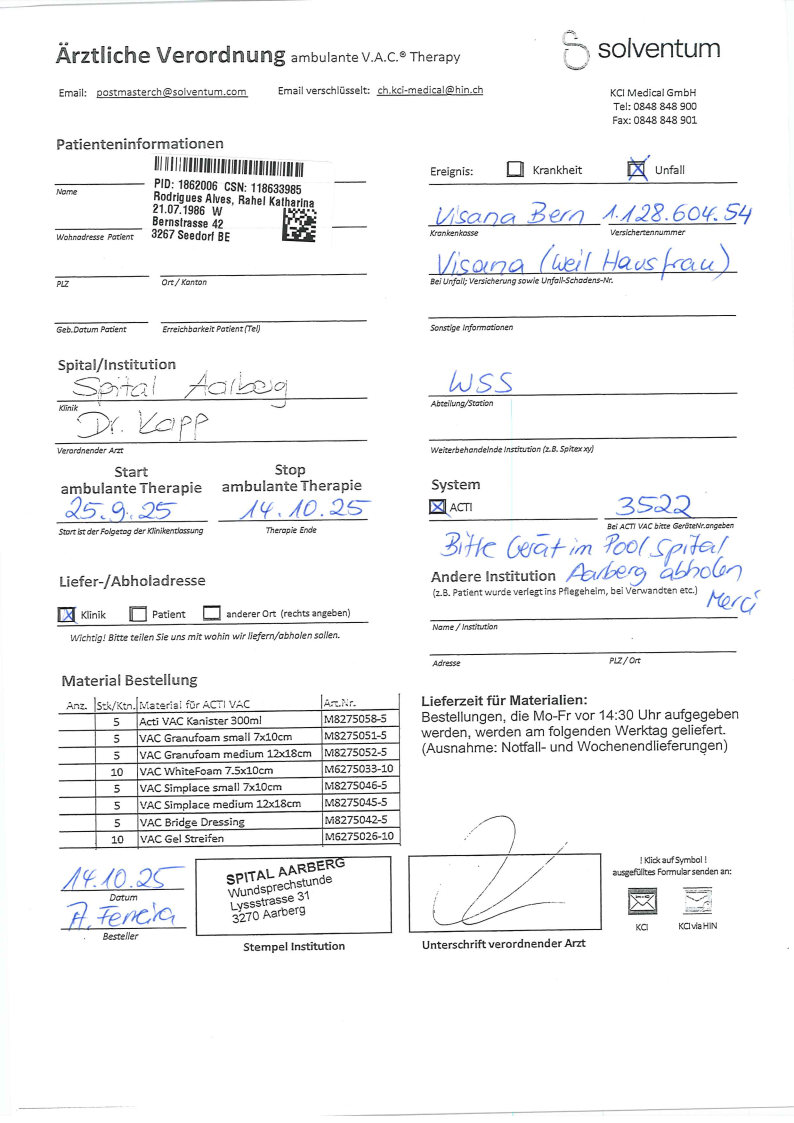 Ärztliche Verordnung ambulante V.A.C.® Therapy
solventum
Email: postmasterch@solventum.com Email verschlüsselt: ch.kci-medical@hin.ch
KCI Medical GmbH
Tel: 0848 848 900
Fax: 0848 848 901
Patienteninformationen
PID: 1862006 CSN: 118633985
Rodrigues Alves, Rahel Katharina
21.07.1986 W
Bernstrasse 42
3267 Seedorf BE
Name
Wohnadresse Patient
PLZ Ort / Kanton
Geb.Datum Patient Erreichbarkeit Patient (Tel)
Ereignis: Krankheit Unfall
Visana Bern 1.128.604.54
Krankenkasse Versichertennummer
Visana (weil Hausfrau)
Bei Unfall; Versicherung sowie Unfall-Schadens-Nr.
Sonstige Informationen
Spital/Institution
Spital Aarberg
Klinik
Dr. Kapp
Verordnender Arzt
WSS
Abteilung/Station
Weiterbehandelnde Institution (z.B. Spitex xy)
Start
ambulante Therapie
25.9.25
Start ist der Folgetag der Klinikentlassung
Stop
ambulante Therapie
14.10.25
Therapie Ende
System
ACTI 3522
Bei ACTI VAC bitte GeräteNr.angeben
Bitte Gerät im Pool Spital
Aarberg abholen
Merci
Andere Institution
(z.B. Patient wurde verlegt ins Pflegeheim, bei Verwandten etc.)
Name / Institution
Adresse PLZ / Ort
Liefer-/Abholadresse
Klinik Patient anderer Ort (rechts angeben)
Wichtig! Bitte teilen Sie uns mit wohin wir liefern/abholen sollen.
Material Bestellung
Anz. Stk/Ktn. Material für ACTI VAC Art.Nr.
5 Acti VAC Kanister 300ml M8275058-5
5 VAC Granufoam small 7x10cm M8275051-5
5 VAC Granufoam medium 12x18cm M8275052-5
10 VAC WhiteFoam 7.5x10cm M6275033-10
5 VAC Simplace small 7x10cm M8275046-5
5 VAC Simplace medium 12x18cm M8275045-5
5 VAC Bridge Dressing M8275042-5
10 VAC Gel Streifen M6275026-10
Lieferzeit für Materialien:
Bestellungen, die Mo-Fr vor 14:30 Uhr aufgegeben
werden, werden am folgenden Werktag geliefert.
(Ausnahme: Notfall- und Wochenendlieferungen)
14.10.25
Datum
A. Ferreira
Besteller
SPITAL AARBERG
Wundsprechstunde
Lyssstrasse 31
3270 Aarberg
Stempel Institution
Unterschrift verordnender Arzt
! Klick auf Symbol !
ausgefülltes Formular senden an:
KCI KCI via HIN